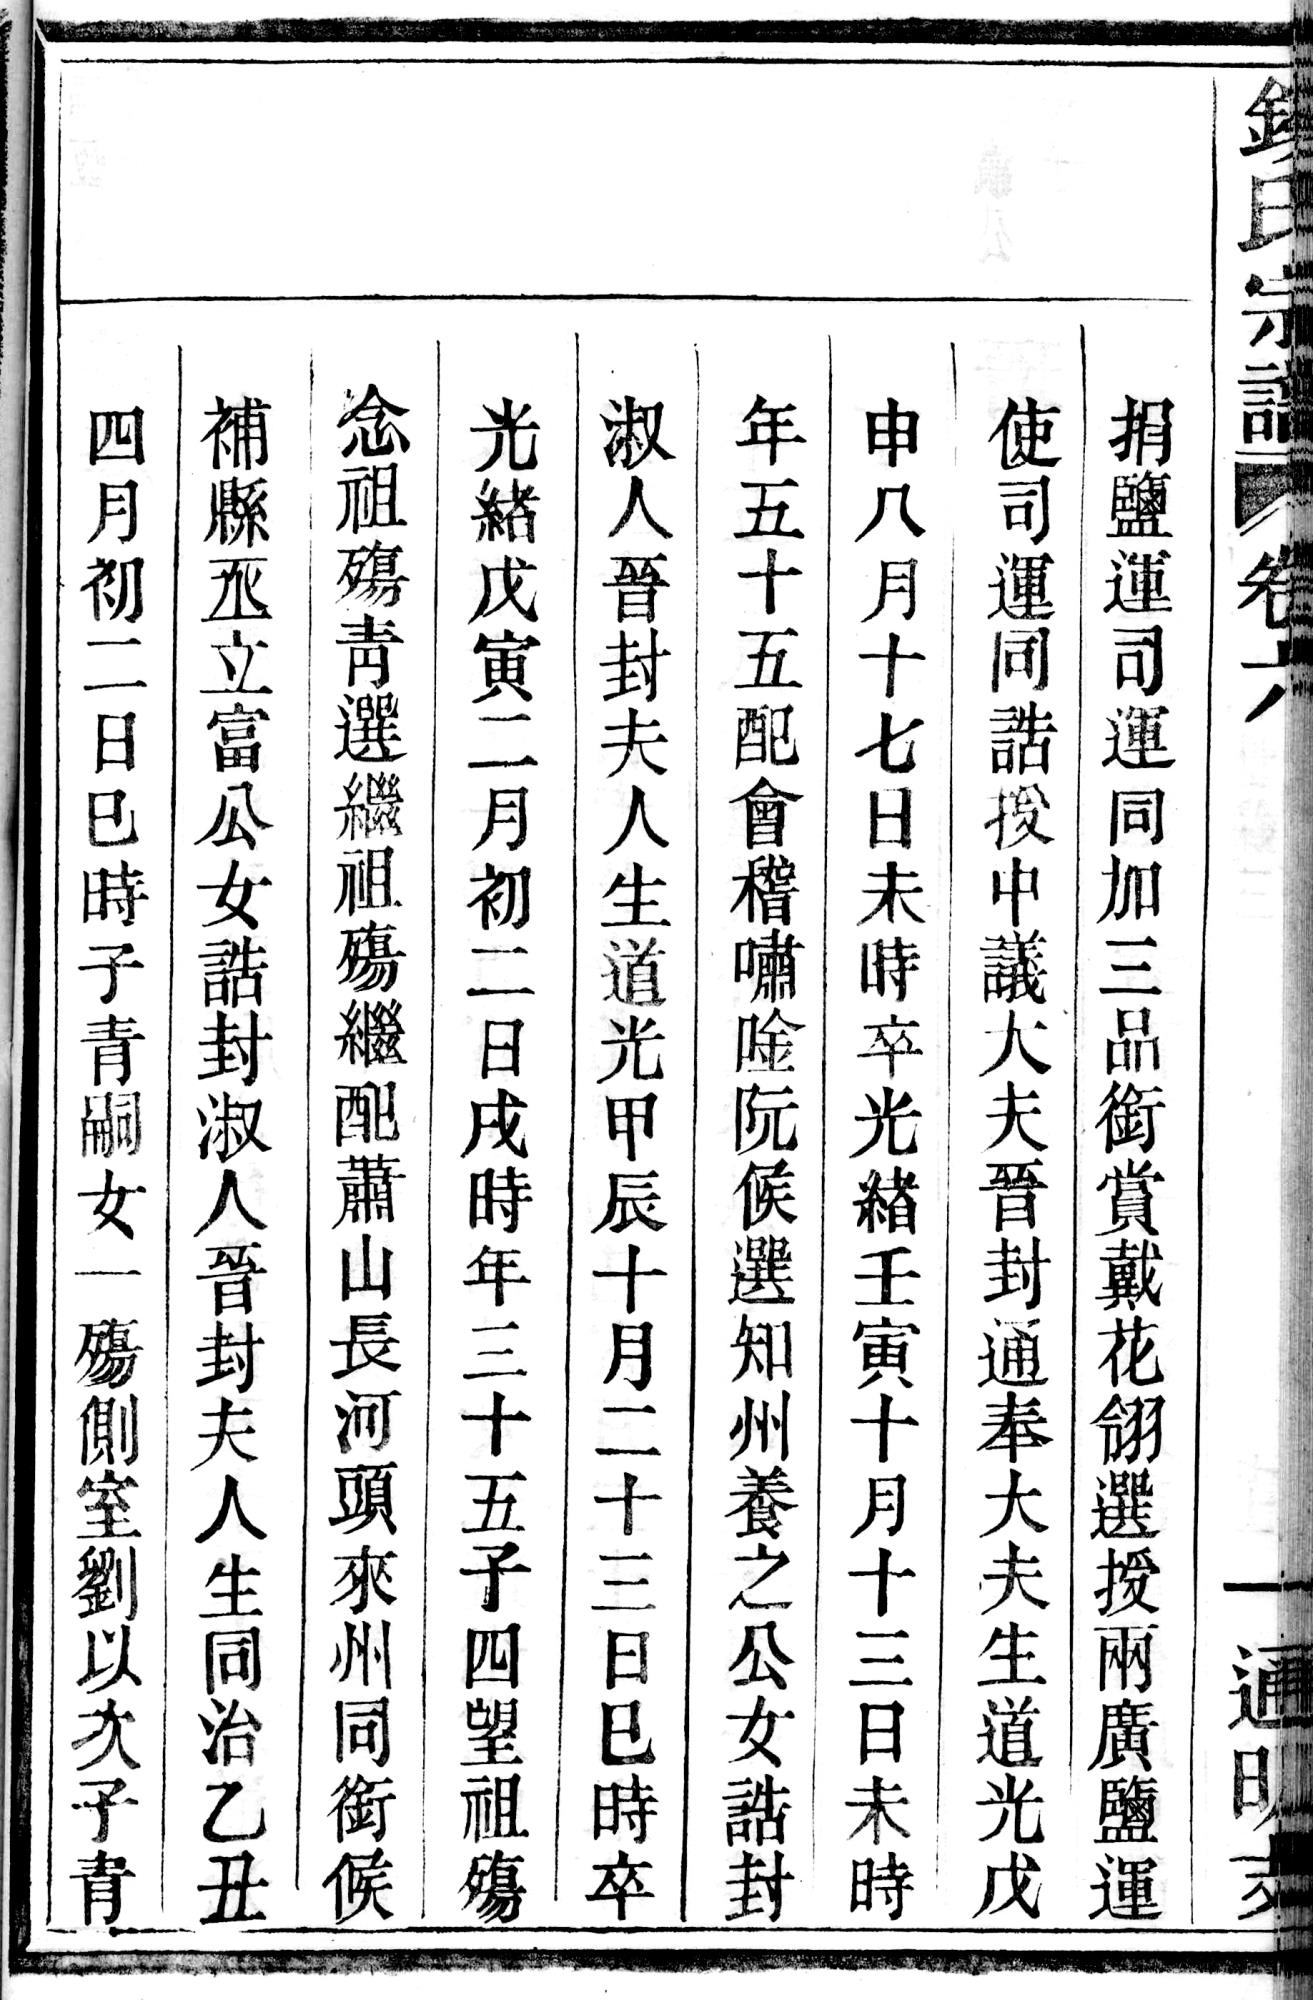 氏宗譜 卷六 一 通明支
捐鹽運司運同加三品銜賞戴花翎選授兩廣鹽運
使司運同誥授中議大夫晉封通奉大夫生道光戊
申八月十七日未時卒光緒壬寅十月十三日未時
年五十五配會稽嘯唫阮候選知州養之公女誥封
淑人晉封夫人生道光甲辰十月二十三日巳時卒
光緒戊寅二月初二日戌時年三十五子四望祖殤
念祖殤靑選繼祖殤繼配蕭山長河頭來州同銜候
補縣丞立富公女誥封淑人晉封夫人生同治乙丑
四月初二日巳時子青嗣女一殤側室劉以次子青